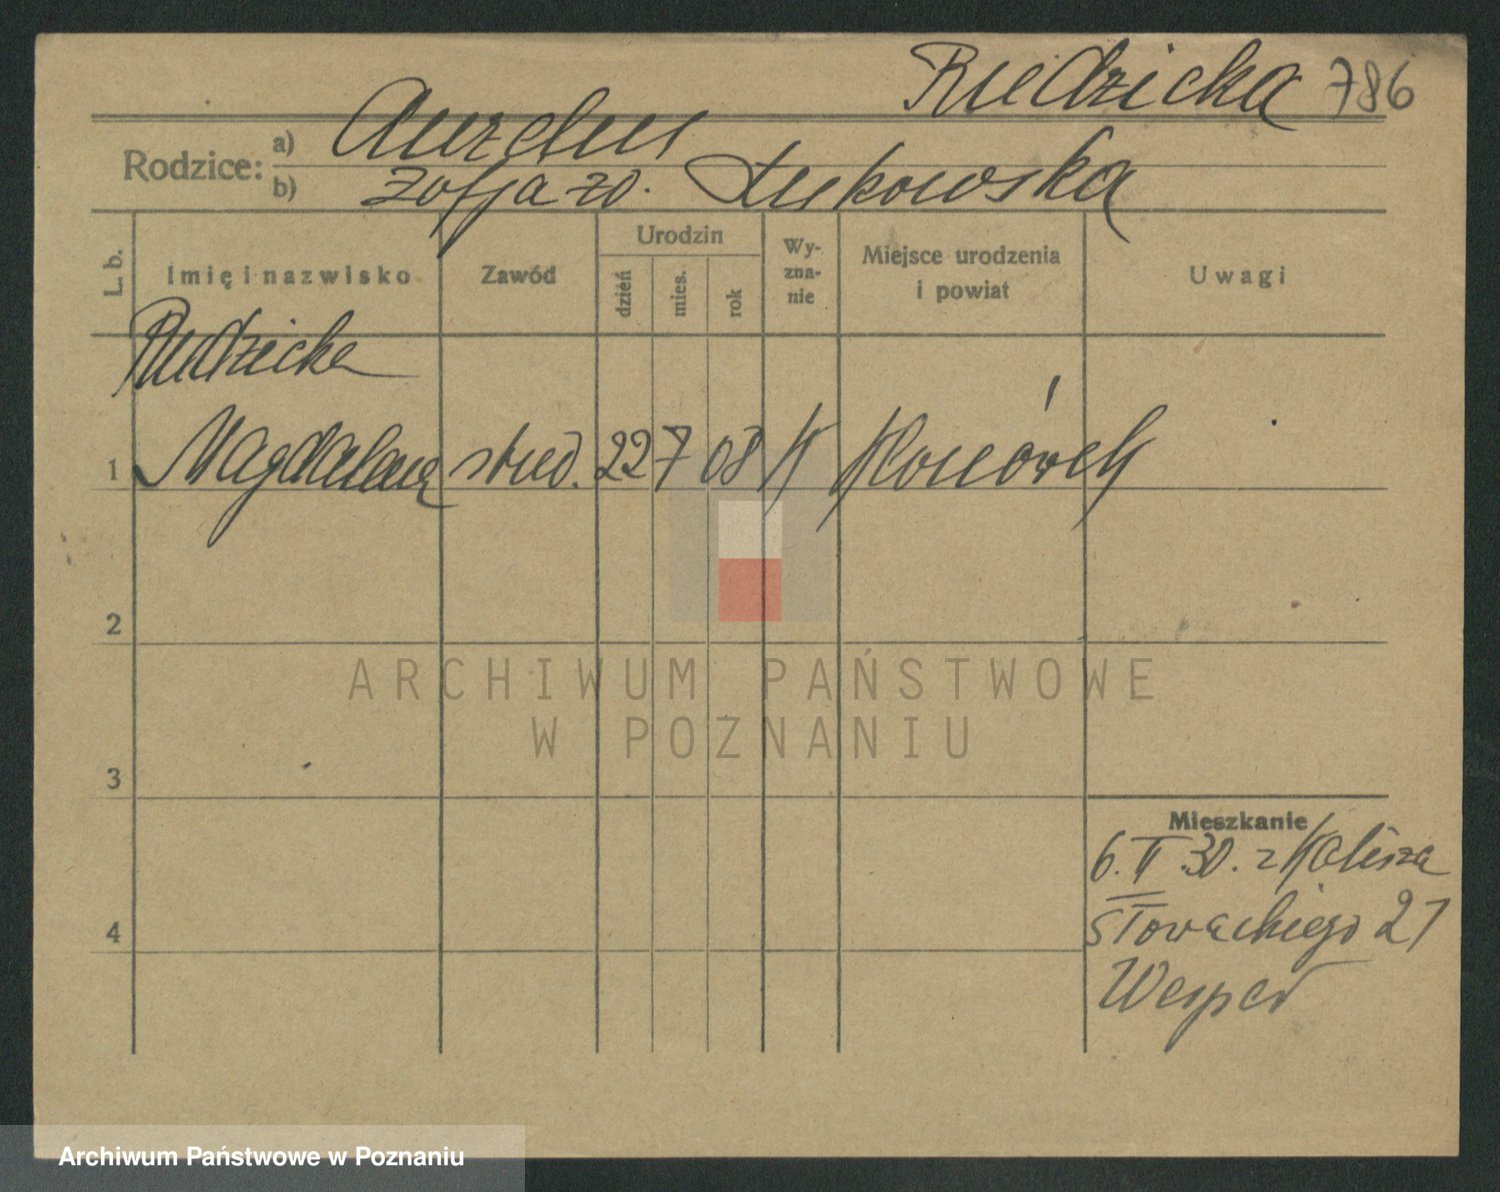 Rudzicka 786
Rodzice: a) Aurelus
b) Zofja zd. Łukowska
L. b.
Imię i nazwisko
Zawód
Urodzin
dzień
mies.
rok
Wy-
zna-
nie
Miejsce urodzenia
i powiat
Uwagi
Rudzicka
1 Magdalena stud. 22 7 08 K
2
ARCHIWUM PAŃSTWOWE
W POZNANIU
3
Mieszkanie
6. II. 30. z Kalisza
4 Słowackiego 21
Archiwum Państwowe w Poznaniu